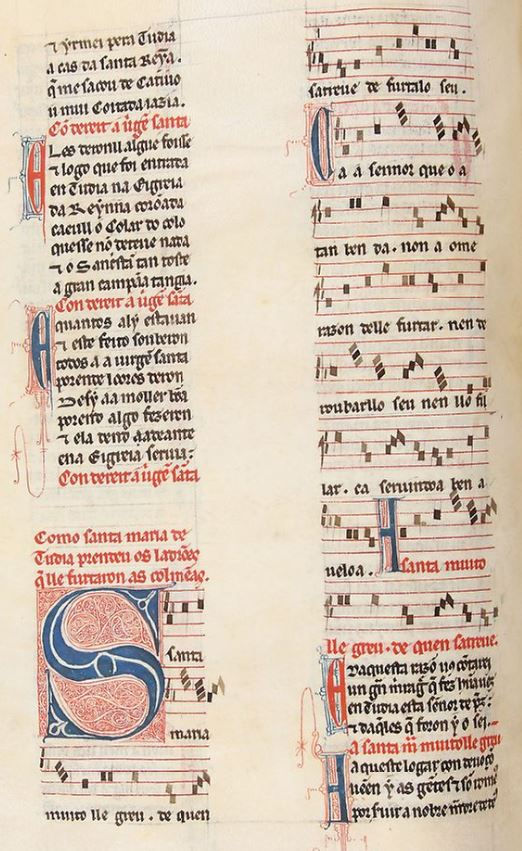 ⁊ yrmei pera Tudia
a cas da santa Reỹa.
q̃ me sacou de Catiuo
u mui Coitada iazia.
Cõ dereit a uirgẽ santa
Les deron ll algue fousse
⁊ logo que foi entrada
en Tudia na Eigreia
da Reynna corõada
caeu ll o Colar do colo
que sse nõ deteue nada
⁊ o San esta tan toste
a gran campãa tangia.
Con dereit a uirgẽ sãta
quantos aly estauan
⁊ este feito souberon
todos a a uirgẽ santa
porende loores deron
Desy aa moller bõa
poreito algo fezeron
⁊ ela dent adeante
ena Eigreia seruia:
Con dereit a uirgẽ sãta
Como santa maria de
Tudia prendeu os ladrões
q̃ lle furtaron as colmẽas.
Santa
maria
muito lle greu · de quen
s atreue de furtalo seu.
Ca a sennor que o a
tan ben da · non a ome
razon delle furtar · nen de
roubar llo seu nen llo fil
lar · ca seruindoa ben a
ueloa · A santa muito
lle greu · de quen s atreue.
E daquesta razõ uos cõtarei
un gñ miragr̃ q̃ fez
en Tudia esta señor de
⁊ daqles q̃ foron y o sei.
A santa m̃ muito lle greu
A aqueste logar con deuoçõ
uẽen y as gẽtes ⁊ sõ
por